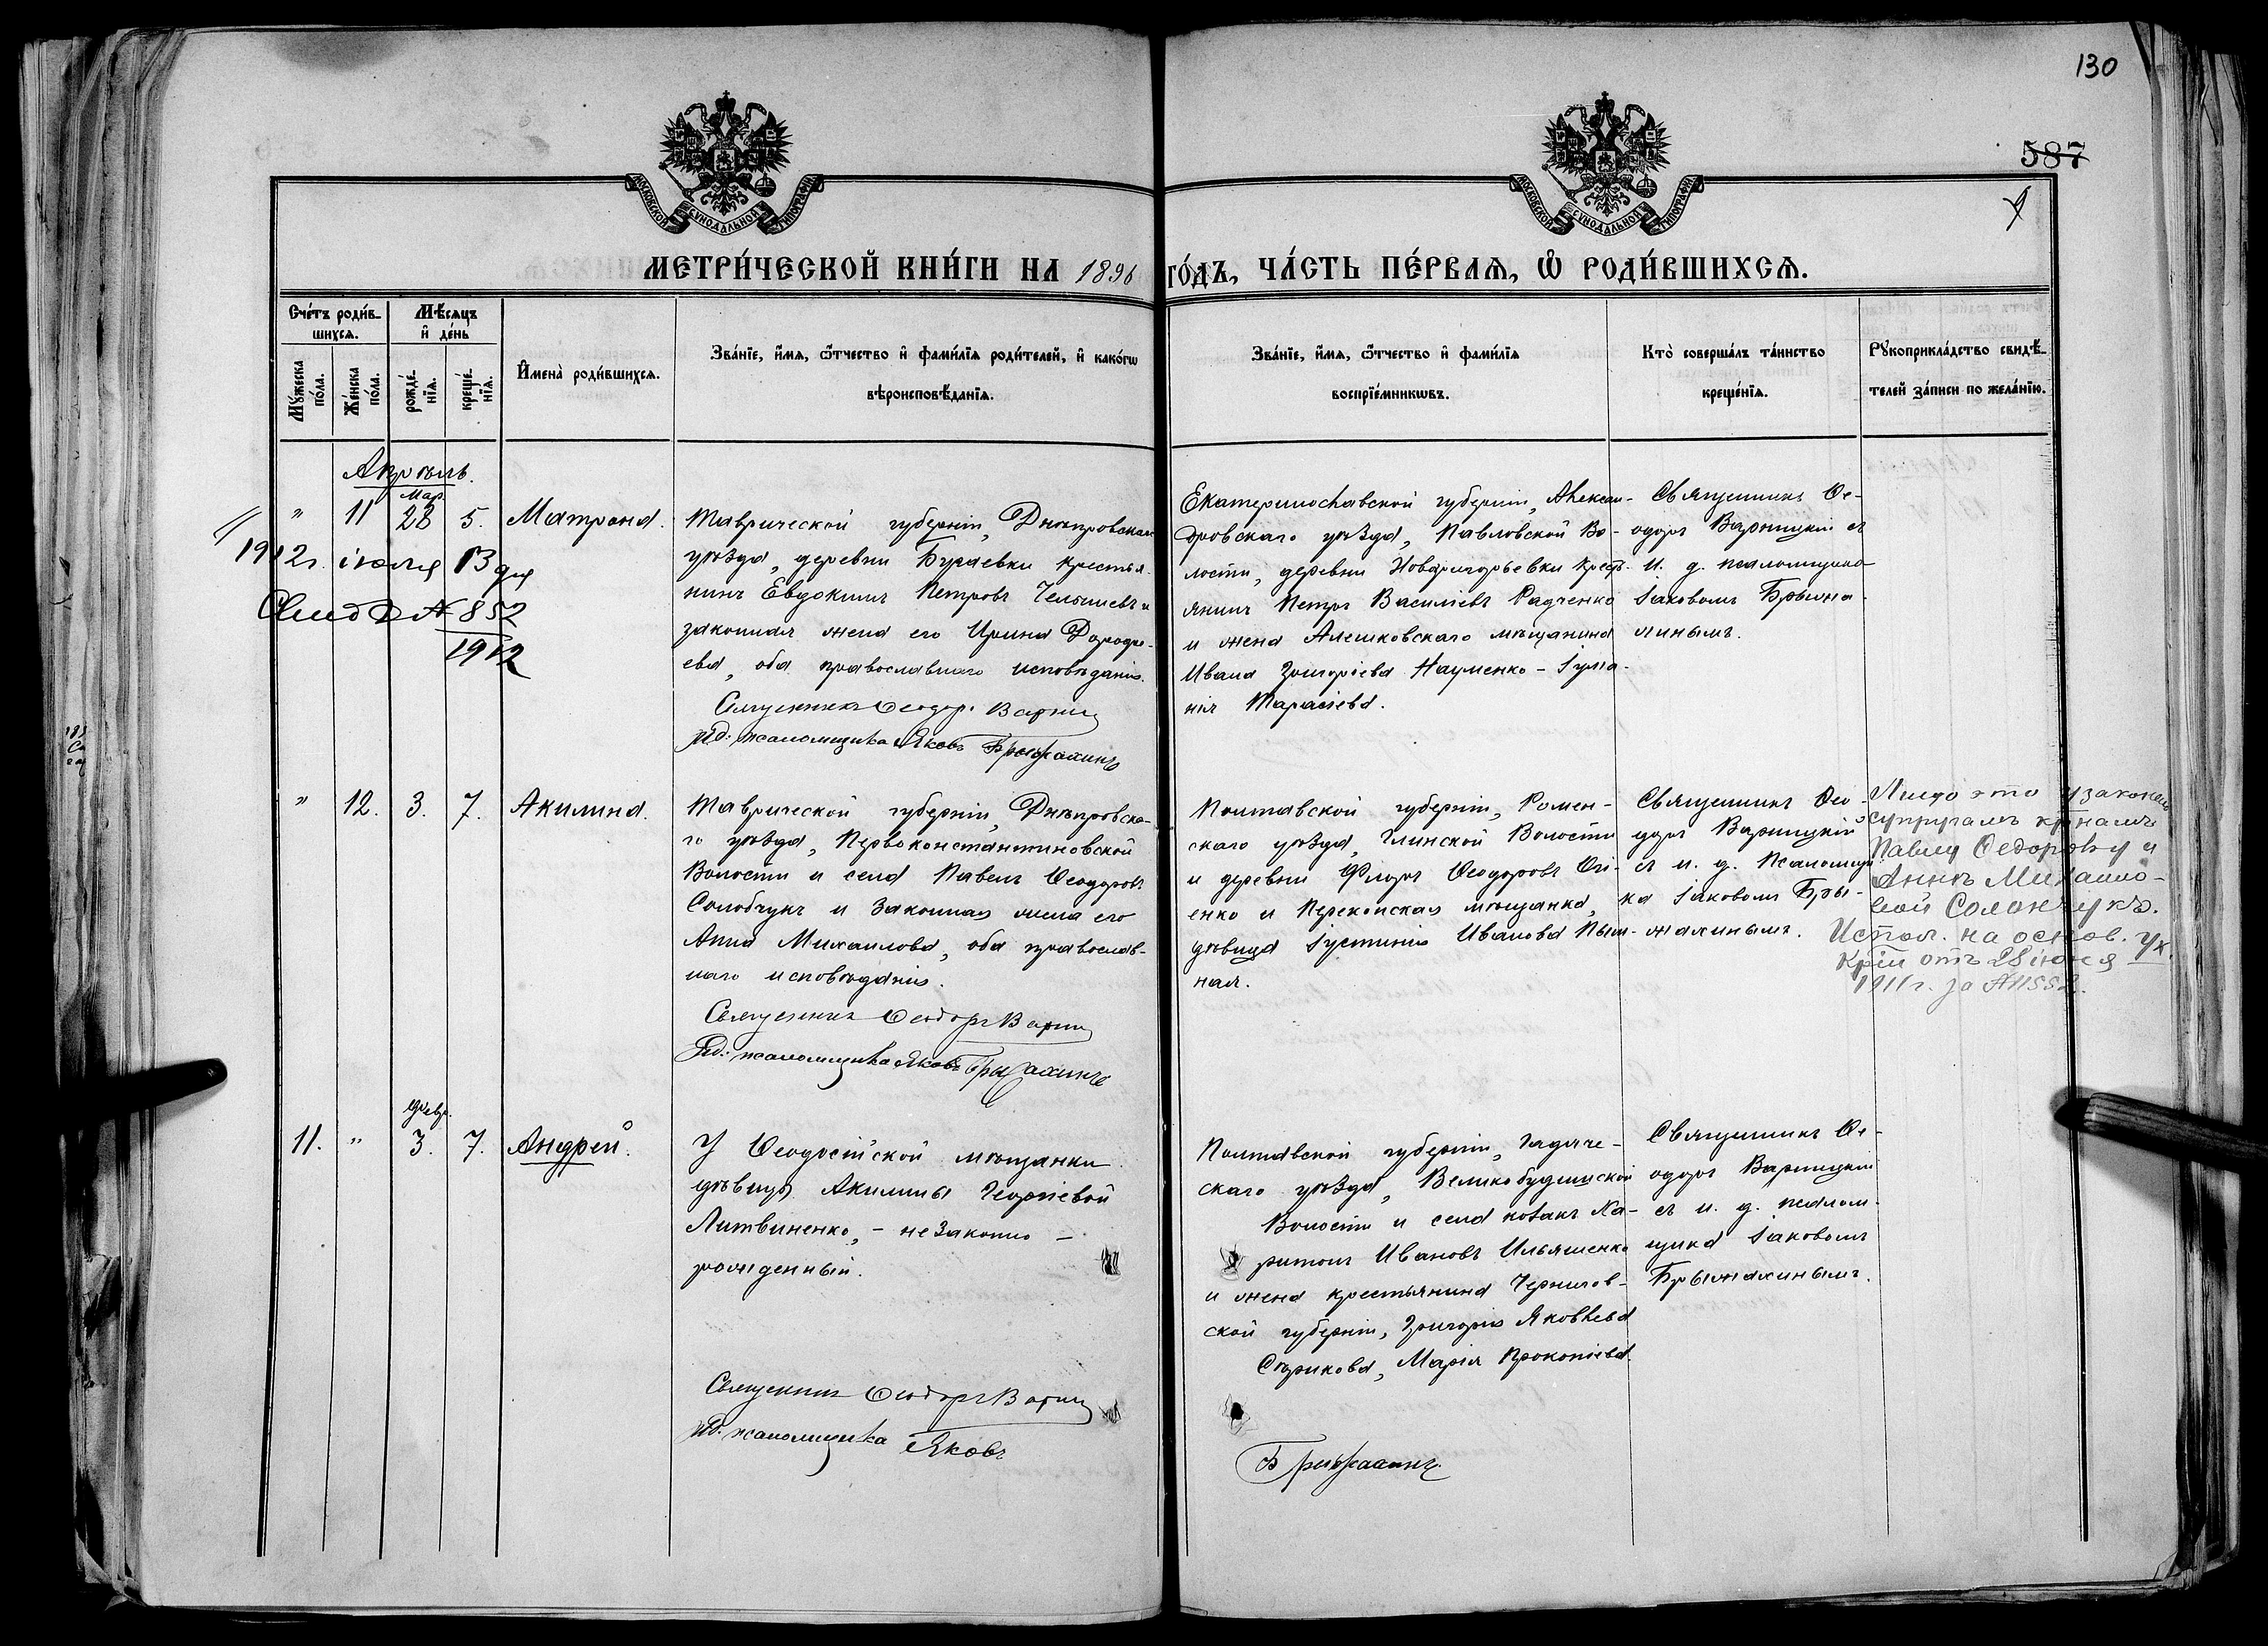 130
587
МОСКОВСКОЙ СѴНОДАЛЬНОЙ ТИПОГРАФІИ
МОСКОВСКОЙ СѴНОДАЛЬНОЙ ТИПОГРАФІИ
МЕТРИ́ЧЕСКОЙ КНИ́ГИ НА 1896 ГО́ДЪ, ЧА́СТЬ ПЕ́РВАѦ, Ѽ РОДИ́ВШИХСѦ.
Сче́тъ роди́в-
шихсѧ.
Мѣ́сѧцъ
и҆ де́нь
Мꙋ́жеска по́ла.
Же́нска по́ла.
рожде́-нїѧ.
креще́-нїѧ.
И҆мена̀ роди́вшихсѧ.
Зва́нїе, и҆́мѧ, ѻ҆́тчество и҆ фами́лїѧ роди́телей, и҆ како́гѡ
вѣроисповѣ́данїѧ.
Зва́нїе, и҆́мѧ, ѻ҆́тчество и҆ фами́лїѧ
воспрїе́мникѡвъ.
Кто̀ соверша́лъ та́инство
креще́нїѧ.
Рꙋкоприкла́дство свидѣ́-
телей за́писи по жела́нїю.
Апрѣль.
Мар.
" 11 28 5. Матрона.
1912г. іюля 13 дня
Свид № 852
1912
Таврической губерніи, Днѣпровскаго
уѣзда, деревни Бугаевки крестья-
нинъ Евдокимъ Петровъ и
законная жена его Ирина Дорофе-
ева, оба православнаго исповѣданія.
Священникъ Ѳеодор. Варниц
И.д. псаломщика Яковъ Брыжахинъ
Екатеринославской губерніи, Алексан-
дровскаго уѣзда, Павловской Во-
лости, деревни Новогригорьевки крест-
янинъ Петръ Василіевъ Радченко
и жена Алешковскаго мѣщанина
Ивана Григоріева Науменко – Іулiа-
нія Тарасіева.
Священникъ Ѳе-
одоръ Варницкій съ
и. д. псаломщика
Іаковомъ Брыжа-
хинымъ.
" 12. 3. 7. Акилина.
Таврической губерніи, Днѣпровска-
го уѣзда, Первоконстантиновской
Волости и села Павелъ Ѳеодоровъ
и законная жена его
Анна Михаилова, оба православ-
наго исповѣданія.
Священникъ Ѳеодоръ Варниц
И.д. псаломщика Яковъ Брыжахинъ
Полтавской губерніи, Ромен-
скаго уѣзда, Глинской Волости
и деревни Флоръ Ѳеодоровъ Огі-
енко и Перекопская мѣщанка,
дѣвица Іустинія Иванова
ная.
Священникъ Ѳео-
доръ Варницкій
съ и. д. Псаломщи
ка Іаковомъ Бры-
жахинымъ.
Лицо это узаконено
супругамъ кр-намъ
Павлу Ѳедорову и
Аннѣ Михайло-
вой Солончукъ.
Испол. на основ. ук.
от 28 іюня
1911 г. за №
февр.
11. " 3. 7. Андрей.
У Ѳеодосійской мѣщанки
дѣвицы Акилины Георгіевой
Литвиненко, – незаконно –
рожденный.
Священникъ Ѳеодоръ Варниц
И.д. псаломщика Яковъ
Брыжахинъ
Полтавской губерніи, Гадяче-
скаго уѣзда, Великобудищской
Волости и села козакъ Ха-
ритонъ Ивановъ Ильяшенко
и жена крестьянина Чернигов-
ской губерніи, Григорія Яковлева
Старикова, Марія Прокопіева.
Священникъ Ѳе-
одоръ Варницкій
съ и. д. псалом-
щика Іаковомъ
Брыжахинымъ.